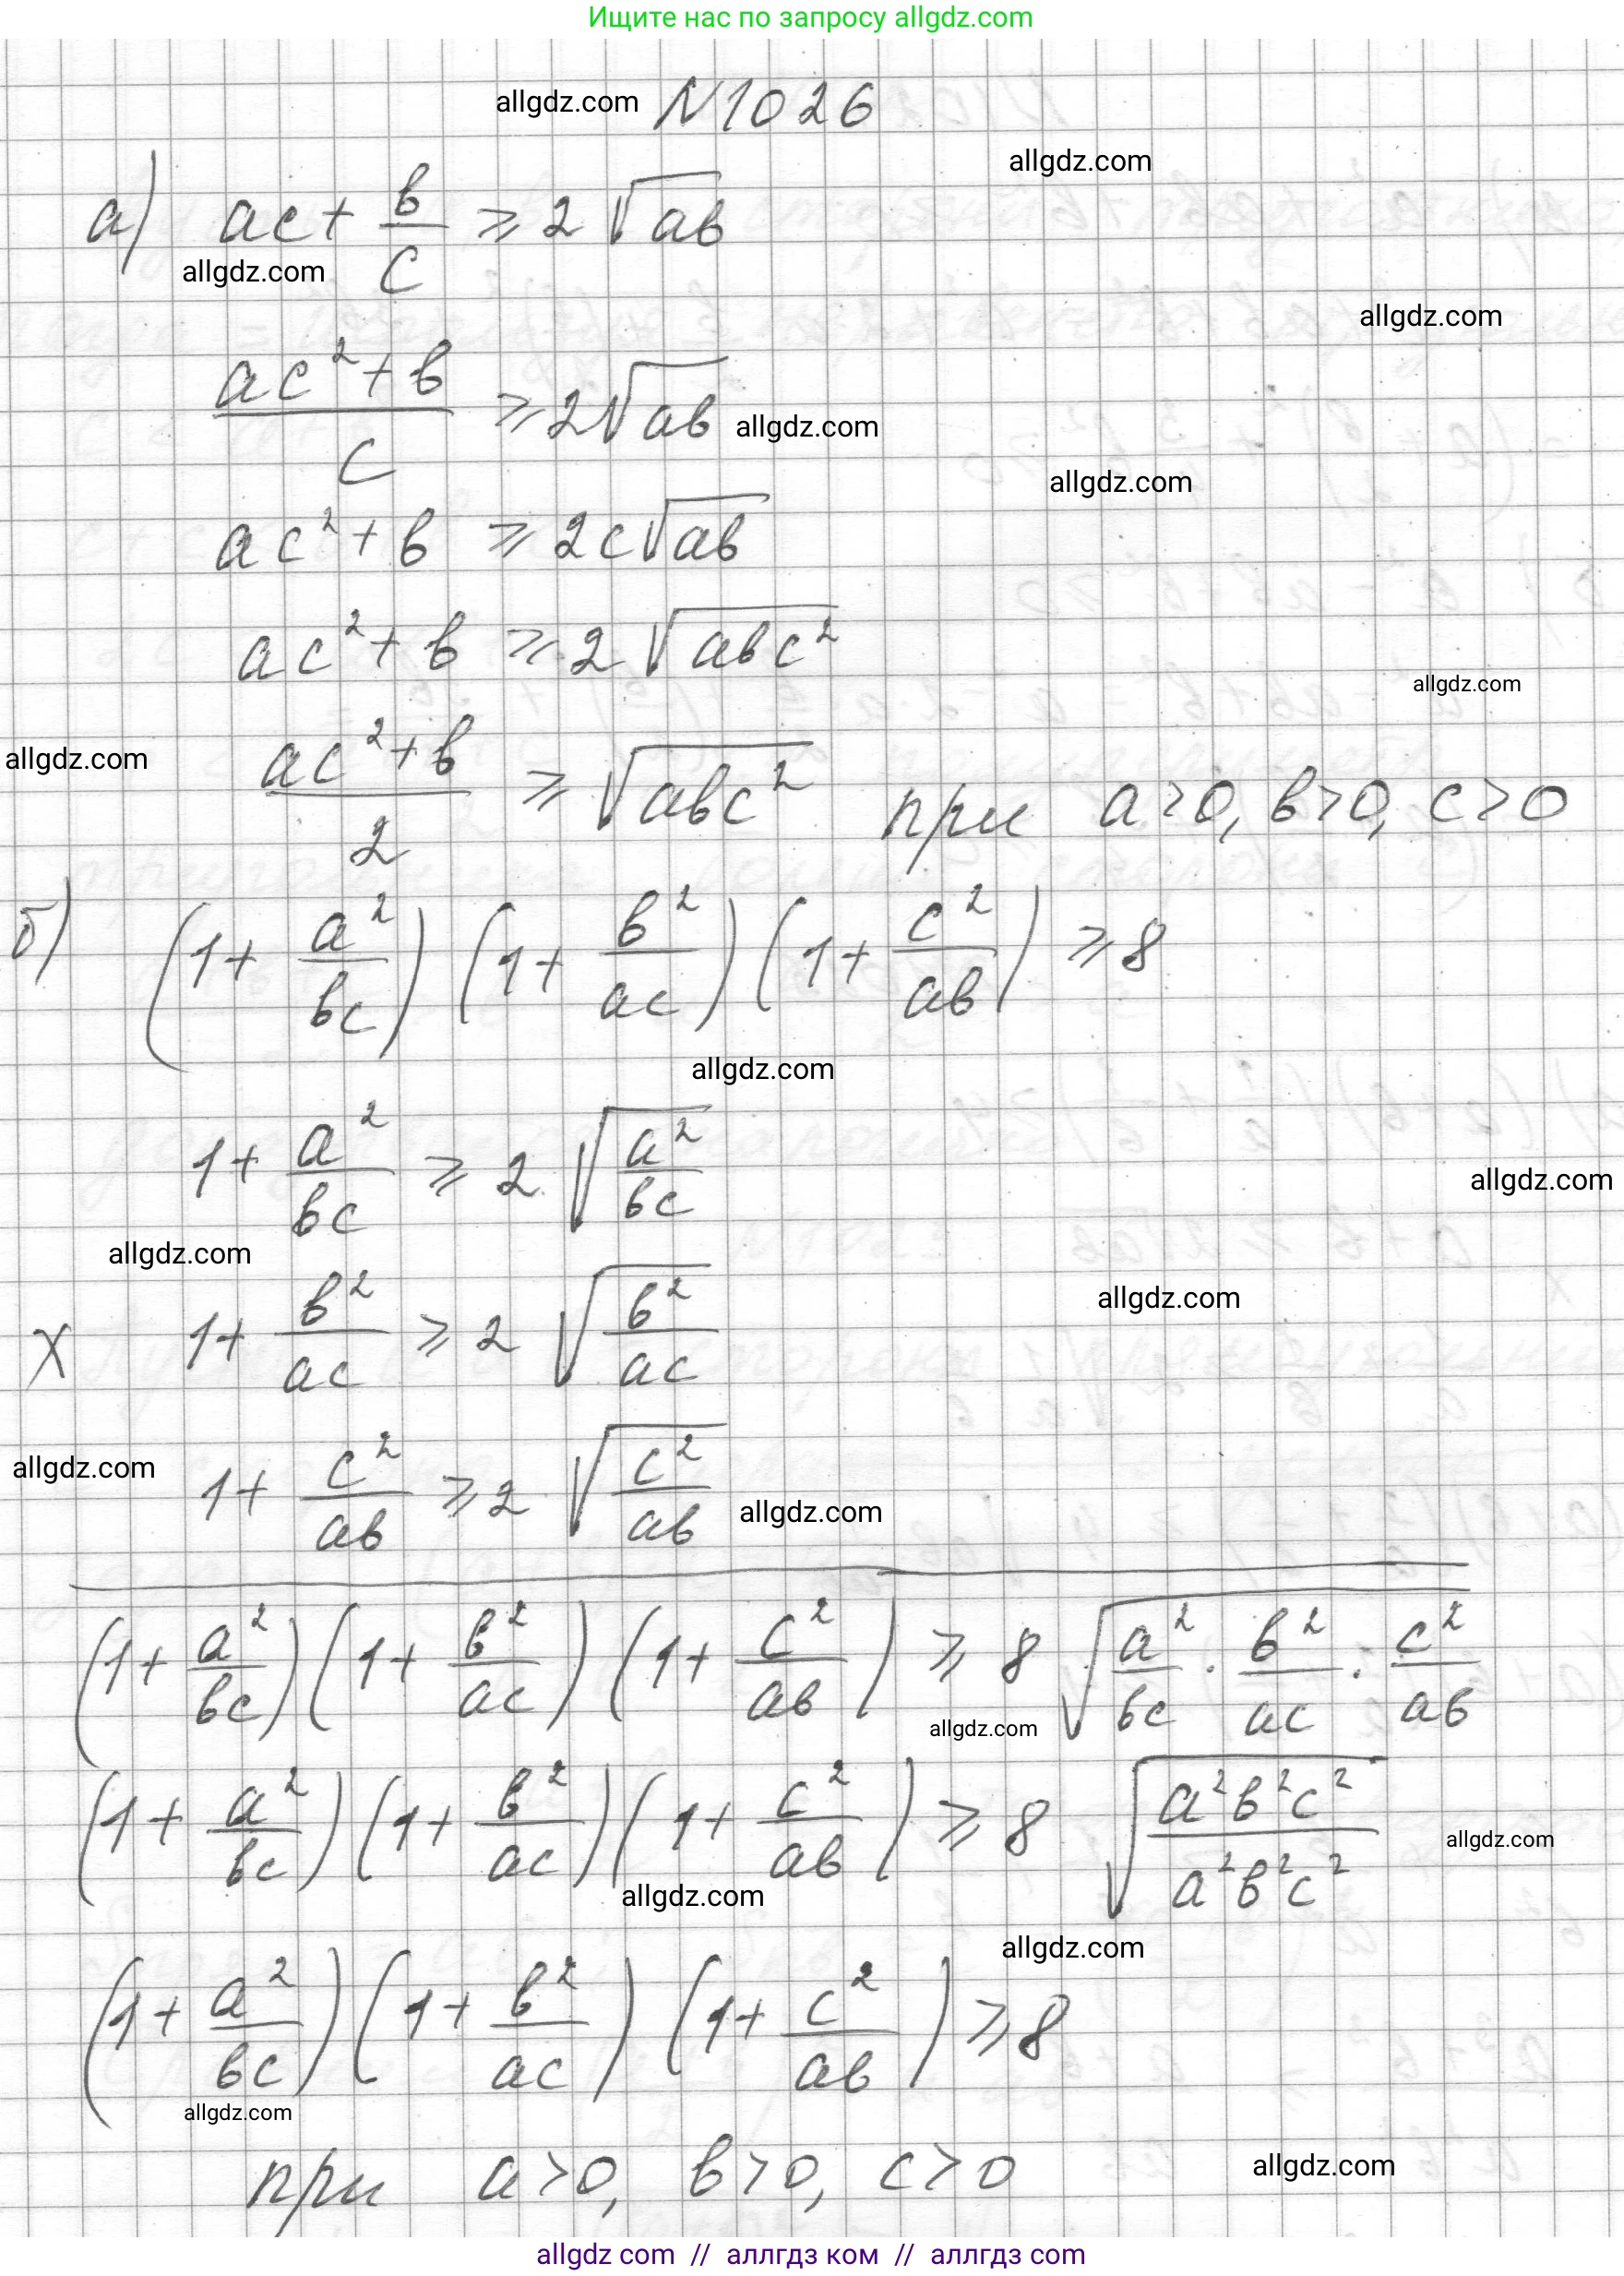 Ищите нас по запросу allgdz.com
allgdz.com N1026
allgdz.com
а) ac + b/c ⩾ 2√ab
allgdz.com
allgdz.com
(ac² + b)/c ⩾ 2√ab allgdz.com
allgdz.com
ac² + b ⩾ 2c√ab
ac² + b ⩾ 2√(abc²)
allgdz.com
allgdz.com
(ac² + b)/2 ⩾ √(abc²) при a>0, b>0, c>0
б) (1 + a²/bc)(1 + b²/ac)(1 + c²/ab) ⩾ 8
allgdz.com
1 + a²/bc ⩾ 2√(a²/bc)
allgdz.com
allgdz.com
allgdz.com
× 1 + b²/ac ⩾ 2√(b²/ac)
allgdz.com
1 + c²/ab ⩾ 2√(c²/ab) allgdz.com
(1 + a²/bc)(1 + b²/ac)(1 + c²/ab) ⩾ 8√(a²/bc · b²/ac · c²/ab)
allgdz.com
(1 + a²/bc)(1 + b²/ac)(1 + c²/ab) ⩾ 8√(a²b²c²/a²b²c²)
allgdz.com
allgdz.com
allgdz.com
(1 + a²/bc)(1 + b²/ac)(1 + c²/ab) ⩾ 8
allgdz.com
при a>0, b>0, c>0
allgdz.com
allgdz com // аллгдз ком // аллгдз com